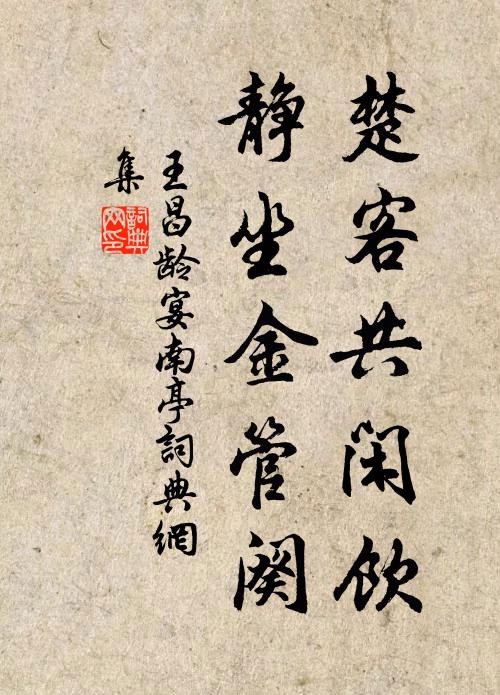 楚客共闲饮
静坐金管阕
王昌龄宴南亭詞典網
集
詞典网印